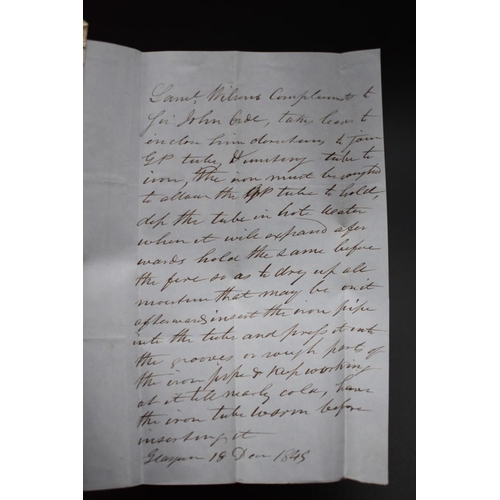 Saml Wilsons Compliments to
Sir John &, takes leave to
inclose him directions to join
GP tube, & uniting tube to
iron, the iron must be roughed
to allow the GP tube to hold,
dip the tube in hot water
when it will expand after
wards hold the same before
the fire so as to dry up all
moisture that may be on it
afterwards insert the iron pipe
into the tube and press it into
the grooves or rough parts of
the iron pipe & keep working
at it till nearly cold, have
the iron tube warm before
inserting it
Glasgow 18 Decr 1845